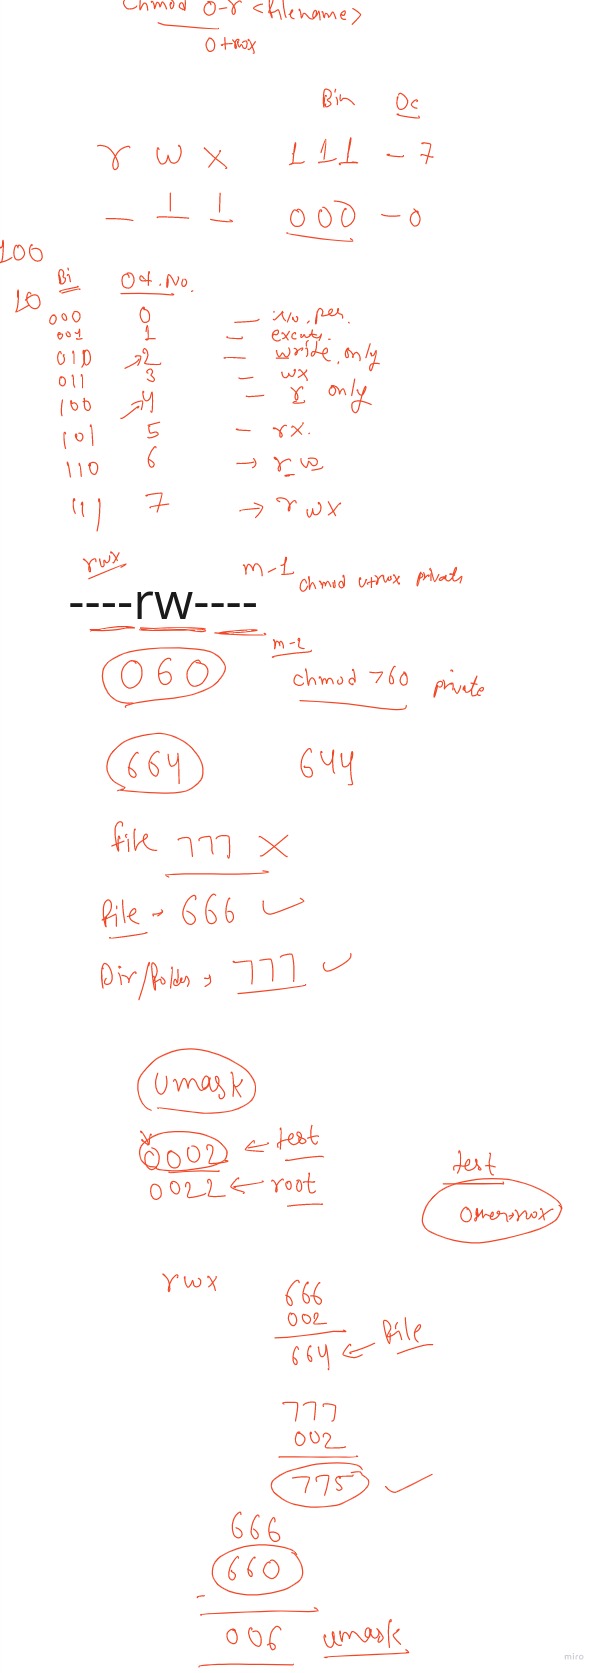 chmod o-r <filename>
o+rwx
Bin Oc
r w x 111 - 7
_ 1 1 000 - 0
100
10
Bi Oct.No.
000 0 - No. per.
001 1 -
010 2 - write only
011 3 - wx
100 4 - r only
101 5 - rx.
110 6 → rw
111 7 → rwx
rwx m-1 chmod u+rwx private
----rw----
m-2
060 chmod 760 private
664 644
file 777 X
File → 666 ✓
Dir/Folder → 777 ✓
umask
0002 ← test
0022 ← root
test
other=rwx
rwx
666
002
664 ← File
777
002
775 ✓
666
660
-
006 umask
miro